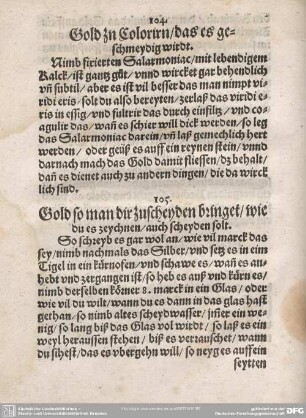 104.
Gold zu Colorirn/das es ge-
schmeydig wirdt.
Nimb fixierten Salarmoniac/mit lebendigem
Kalck/ist gantz gůt/vnnd wircket gar behendlich
vñ subtil/aber es ist vil besser das man nimpt viri
ridi eris/solt du also bereyten/zerlaß das viridi e-
ris in essig/vnd fultrir das durch einfiltz/vnd co-
agulir das/wañ es schier will dick werden/so leg
das Salarmoniac darein/vñ laß gemechlich hert
werden/oder geüß es auff ein reynen stein/vnnd
darnach mach das Gold damit fliessen/dz behalt/
dañ es dienet auch zu andern dingen/die da wirck
lich sind.
105.
Gold so man dir zuscheyden bringet/wie
du es zeychnen/auch scheyden solt.
So schreyb es gar wol an/wie vil marck das
sey/nimb nachmals das Silber/vnd setz es in eim
Tigel in ein kürnofen/vnd schawe es/wañ es an-
hebt vnd zergangen ist/so heb es auß vnd kürn es/
nimb derselben körner 8. marck in ein Glas/oder
wie vil du wilt/wann du es dann in das glas hast
gethan/so nimb altes scheydwasser/jnñer ein we-
nig/so lang biß das Glas vol wirdt/so laß es ein
weyl herauffen stehen/biß es vertauschet/wann
du sihest/das es vbergehn will/so neyg es auff ein
seytten